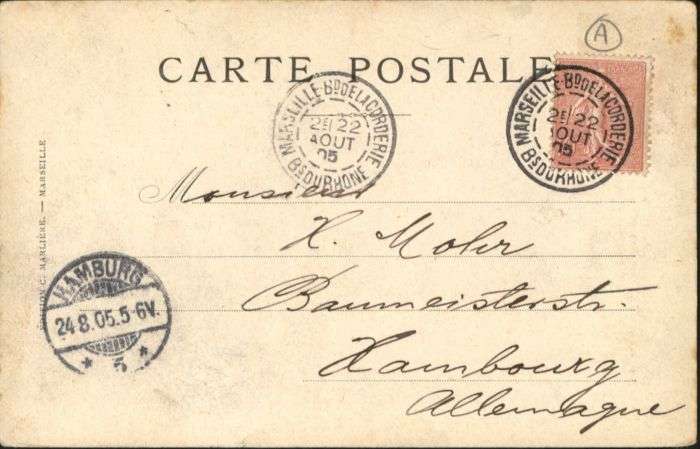 A
CARTE POSTALE
MARSEILLE-BD DE LA CORDERIE
2E/22
AOUT
05
BS DU RHONE
MARSEILLE-BD DE LA CORDERIE
2E/22
AOUT
05
BS DU RHONE
Monsieur
H. Mohr
Baumeisterstr.
Hambourg
Allemagne
HAMBURG
24.8.05.5-6V.
* 5 *
C. MARLIÈRE. — MARSEILLE